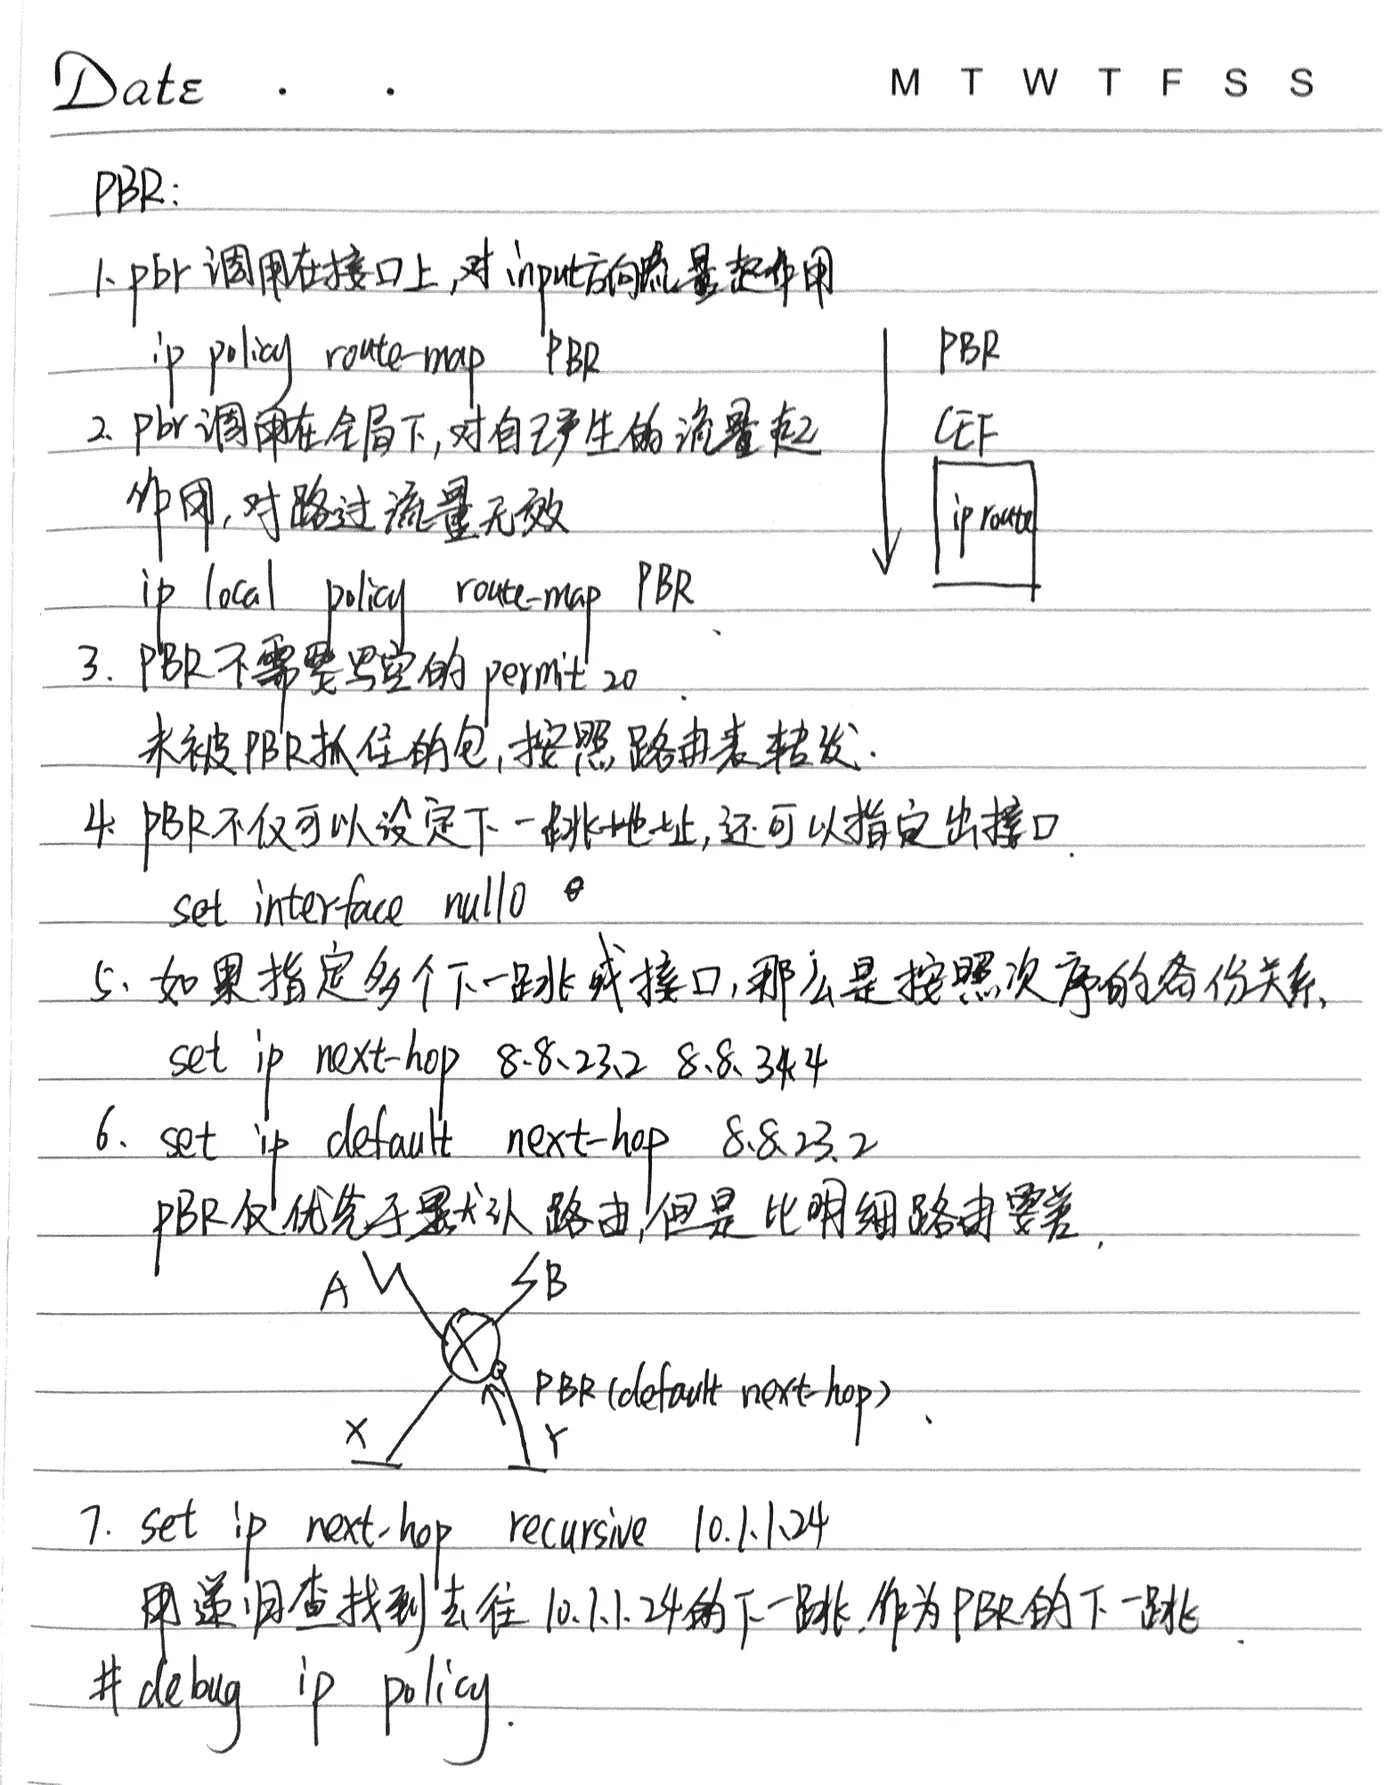 Date . .
M T W T F S S
PBR:
1. pbr调用在接口上,对input方向流量起作用
ip policy route-map PBR
2. pbr调用在全局下,对自己产生的流量起
作用,对路过流量无效
ip local policy route-map PBR
PBR
CEF
ip route
3. PBR不需要写空的permit 20.
未被PBR抓住的包,按照路由表转发.
4. PBR不仅可以设定下一跳地址,还可以指定出接口.
set interface null0
5. 如果指定多个下一跳或接口,那么是按照次序的备份关系.
set ip next-hop 8.8.23.2 8.8.34.4
6. set ip default next-hop 8.8.23.2
PBR仅优先于默认路由,但是比明细路由要差.
A
B
PBR(default next-hop)
X
Y
7. set ip next-hop recursive 10.1.1.24
用递归查找到去往10.1.1.24的下一跳,作为PBR的下一跳.
#debug ip policy.